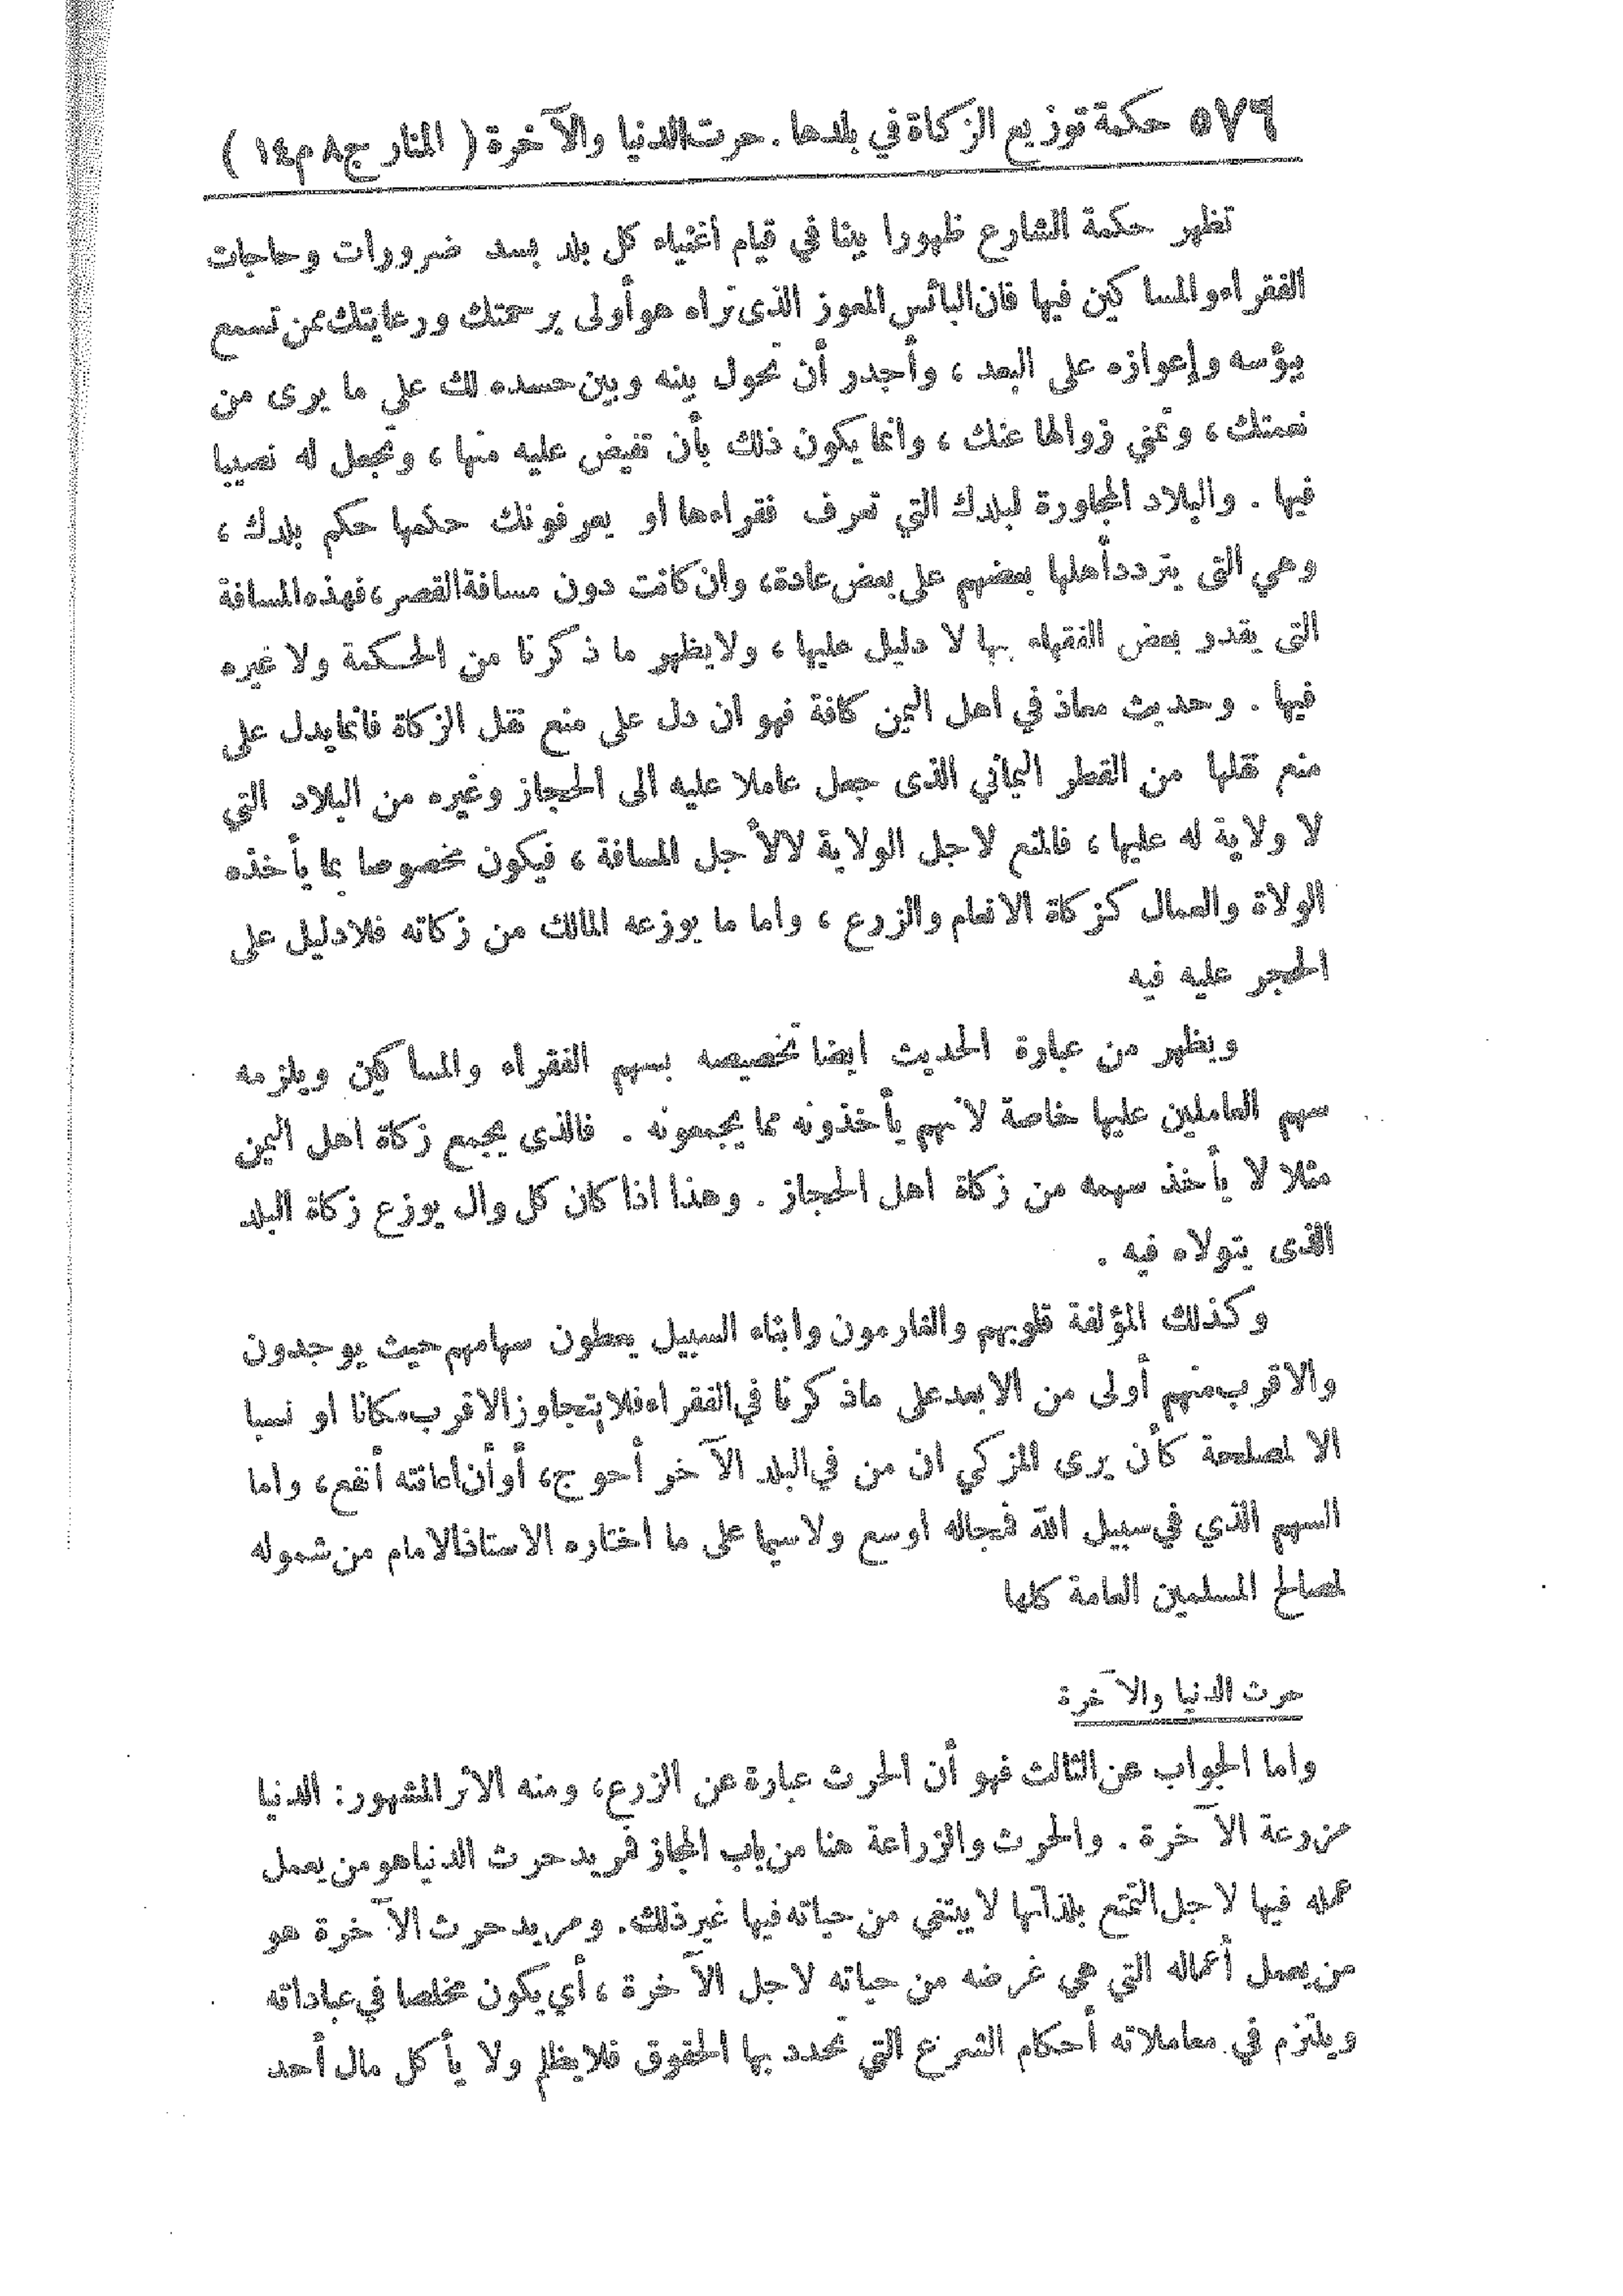 ٥٧٦ حكمة توزيع الزكاة في بلدها . حرث الدنيا والآخرة ( المنار ج ٨ م ١٤ )
تظهر حكمة الشارع ظهورا بينا في قيام أغنياء كل بلد بسد ضرورات وحاجات
الفقراء والمساكين فيها فان البائس المعوز الذى تراه هو أولى برحمتك ورعايتك ممن تسمع
ببؤسه وإعوازه على البعد ، وأجدر أن تحول بينه وبين حسده لك على ما يرى من
نعمتك ، وتمني زوالها عنك ، وانما يكون ذلك بأن تفيض عليه منها ، وتجعل له نصيبا
فيها . والبلاد المجاورة لبلدك التي تعرف فقراءها أو يعرفونك حكمها حكم بلدك ،
وهي التى يتردد أهلها بعضهم على بعض عادة ، وان كانت دون مسافة القصر ، فهذه المسافة
التى يقدر بعض الفقهاء بها لا دليل عليها ، ولا يظهر ما ذكرنا من الحكمة ولا غيره
فيها . وحديث معاذ في اهل اليمن كافة فهو ان دل على منع نقل الزكاة فانما يدل على
منع نقلها من القطر اليماني الذى جعل عاملا عليه الى الحجاز وغيره من البلاد التي
لا ولاية له عليها ، فالمنع لاجل الولاية لا لأجل المسافة ، فيكون مخصوصا بما يأخذه
الولاة والعمال كزكاة الانعام والزرع ، واما ما يوزعه المالك من زكاته فلا دليل على
الحجر عليه فيه
ويظهر من عبارة الحديث ايضا تخصيصه بسهم الفقراء والمساكين ويلزمه
سهم العاملين عليها خاصة لانهم يأخذونه مما يجمعونه . فالذى يجمع زكاة اهل اليمن
مثلا لا يأخذ سهمه من زكاة اهل الحجاز . وهذا اذا كان كل وال يوزع زكاة البلد
الذى يتولاه فيه .
وكذلك المؤلفة قلوبهم والغارمون وابناء السبيل يعطون سهامهم حيث يوجدون
والاقرب منهم أولى من الابعد على ماذكرنا في الفقراء فلا يتجاوز الاقرب مكانا او نسبا
الا لمصلحة كأن يرى المزكي ان من في البلد الآخر أحوج ، أو أن اعانته أنفع ، واما
السهم الذي في سبيل الله فمجاله اوسع ولاسيما على ما اختاره الاستاذ الامام من شموله
لمصالح المسلمين العامة كلها
حرث الدنيا والآخرة
واما الجواب عن الثالث فهو أن الحرث عبارة عن الزرع ، ومنه الاثر المشهور : الدنيا
مزرعة الآخرة . والحرث والزراعة هنا من باب المجاز فمريد حرث الدنيا هو من يعمل
عمله فيها لاجل التمتع بلذاتها لا يبتغي من حياته فيها غير ذلك . ومريد حرث الآخرة هو
من يعمل أعماله التي هي غرضه من حياته لاجل الآخرة ، أي يكون مخلصا في عباداته
ويلتزم في معاملاته أحكام الشرع التي تحدد بها الحقوق فلا يظلم ولا يأكل مال أحد